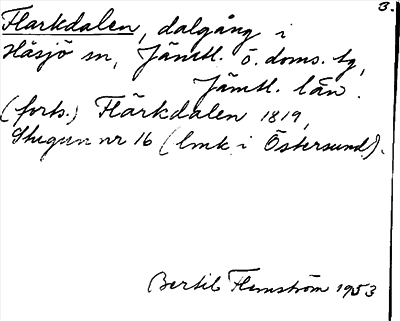 3.
Flarkdalen, dalgång i
Håsjö sn, Jämtl. ö. doms. tg,
Jämtl. län.
(forts.) Flärkdalen 1819,
Stugun nr 16 (lmk i Östersund).
Bertil Flemström 1953